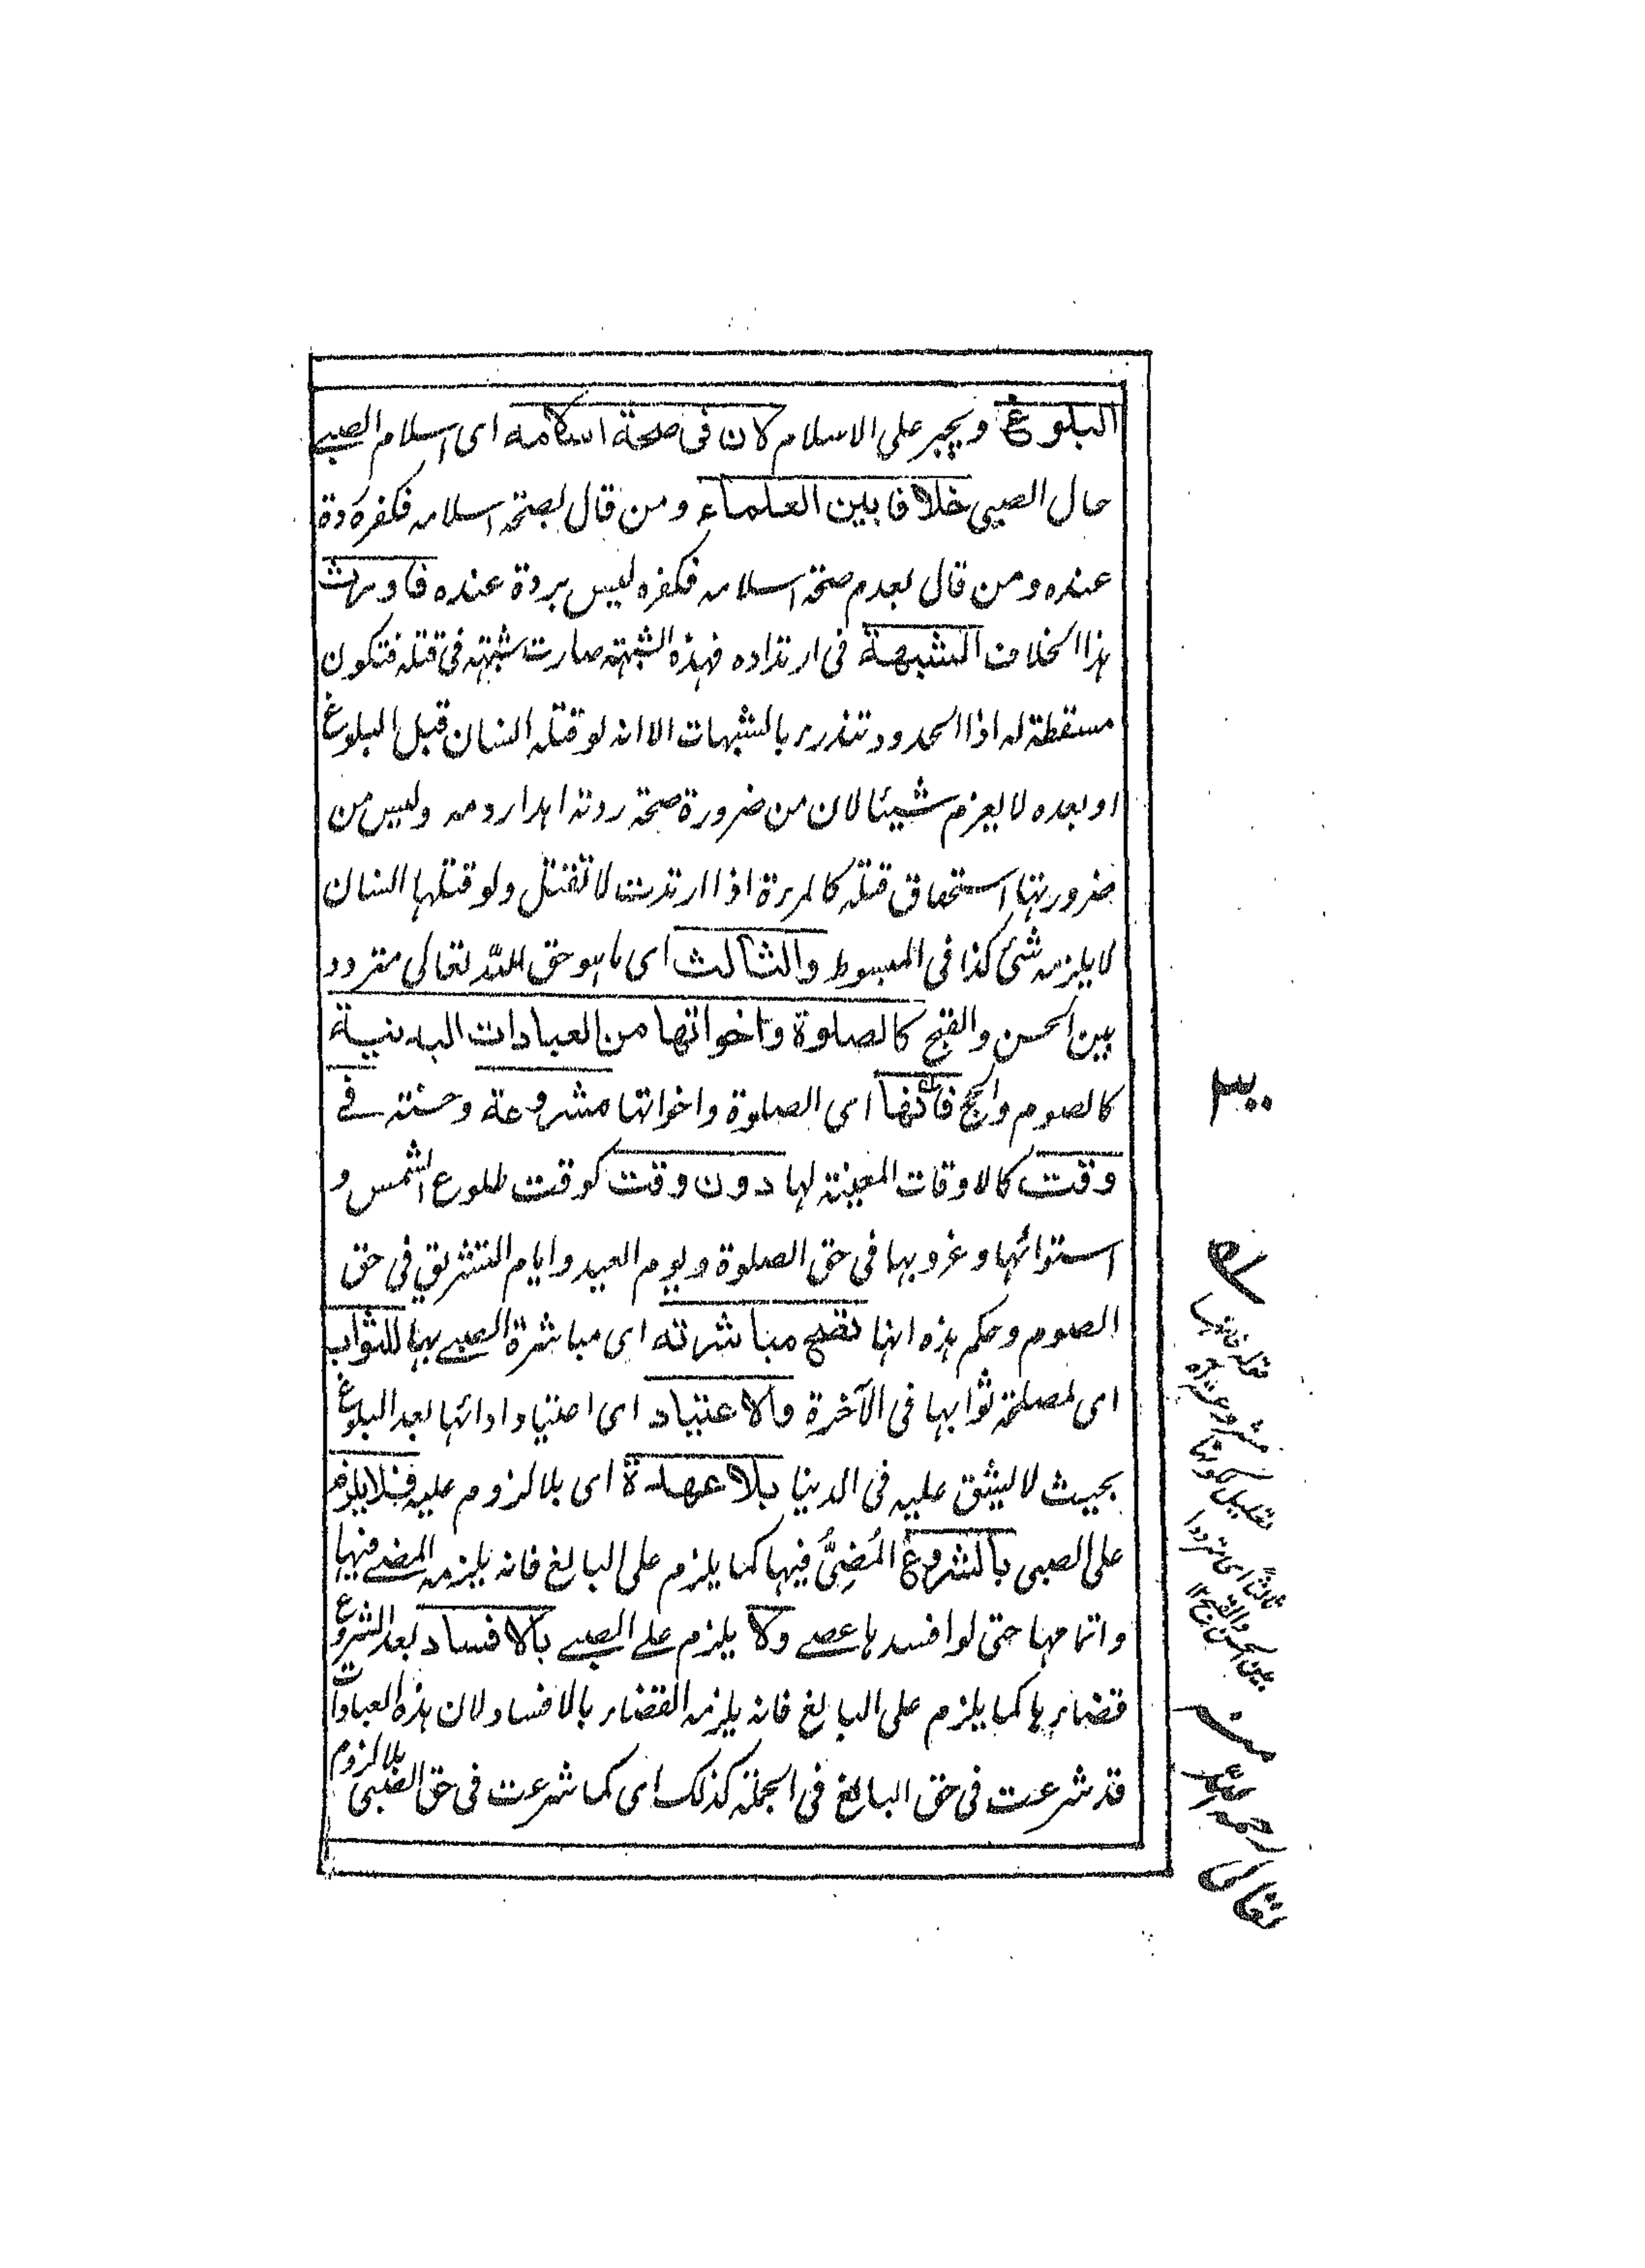 البلوغ ويجبر على الاسلام لان فى صحة اسلامه اى اسلام الصبے
حال الصبى خلافا بين العلماء ومن قال بصحة اسلامه فكفره ردة
عنده ومن قال بعدم صحة اسلامه فكفره ليس بردة عنده فاورث
هذا الخلاف الشبهة فى ارتداده فهذه الشبهة صارت شبهة فى قتله فتكون
مسقطة له اذا الحدود تندرء بالشبهات الا انه لو قتله انسان قبل البلوغ
او بعده لا يغرم شيئا لان من ضرورة صحة ردته اهدار دمه وليس من
ضرورتها استحقاق قتله كالمرءة اذا ارتدت لا تقتل ولو قتلها انسان
لا يلزمه شئ كذا فى المبسوط والثالث اى ما هو حق الله تعالى متردد
بين الحسن والقبح كالصلوة واخواتها من العبادات البدنية
كالصوم والحج فانها اى الصلوة واخواتها مشروعة وحسنة فے
وقت كالاوقات المعينة لها دون وقت كوقت طلوع الشمس و
استوائها وغروبها فى حق الصلوة ويوم العيد وايام التشريق فى حق
الصوم وحكم هذه انها تصح مباشرته اى مباشرة الصبے بها للثواب
اى لمصلحة ثوابها فى الآخرة والاعتياد اى اعتياد ادائها بعد البلوغ
بحيث لا يشق عليه فى الدنيا بلا عهدة اى بلا لزوم عليه فلا يلزم
على الصبى بالشروع المُضِىُّ فيها كما يلزم على البالغ فانه يلزمه المضے فيها
واتمامها حتى لو افسدها عصے ولا يلزم علے الصبے بالافساد بعد الشروع
قضاءها كما يلزم على البالغ فانه يلزمه القضاء بالافساد لان هذه العبادات
قد شرعت فى حق البالغ فى الجملة كذلك اى كما شرعت فى حق الصبى بلا لزوم
٣٠٠
قوله فانها
مشروعة
تعليل لكونها
ثالثا اى مترددا
بين الحسن والقبح ١٢
منه
رحمه الله
تعالى